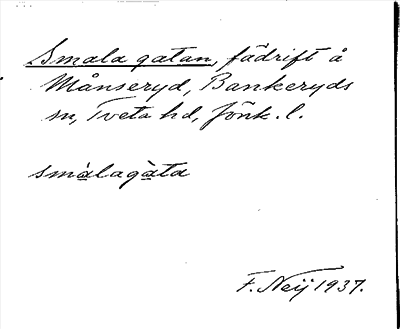 Smala gatan, fädrift å
Månseryd, Bankeryds
sn, Tveta hd, Jönk. l.
smàlagàta
F. Neij 1937.